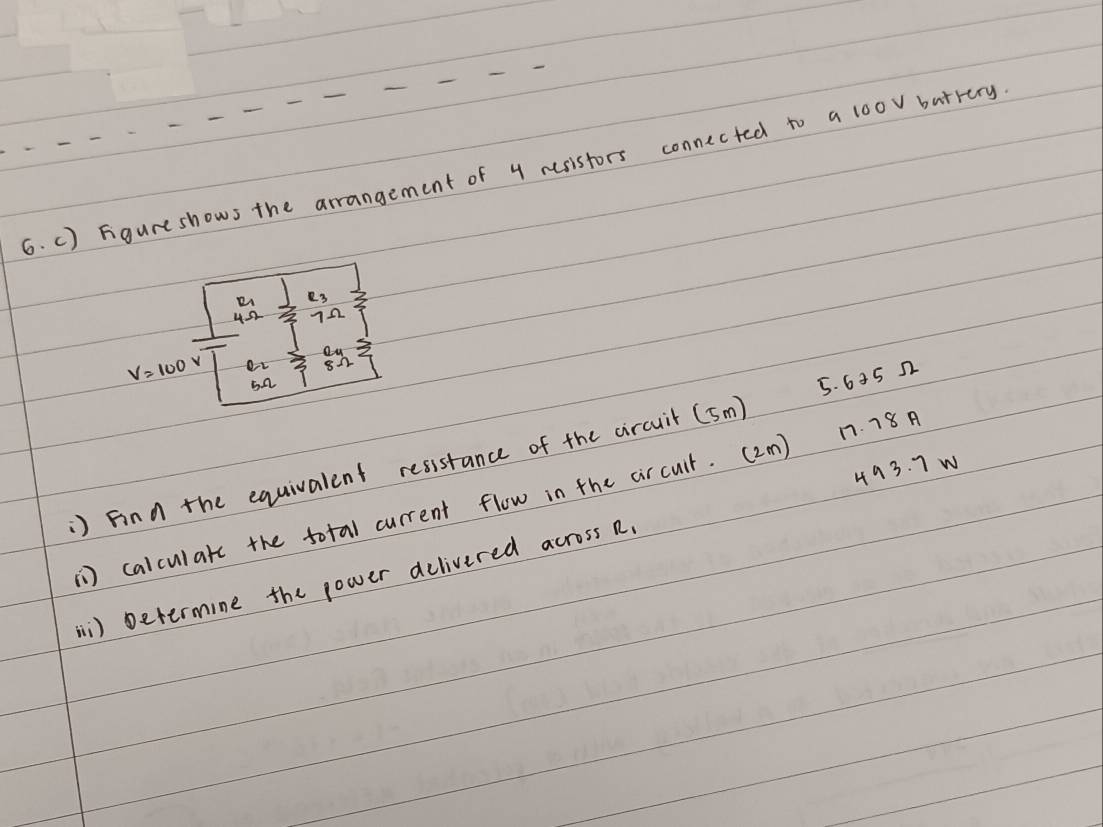 6. c) Figure shows the arrangement of 4 resistors connected to a 100 V battery.
R1
4Ω
R3
7Ω
V = 100 V
R2
5Ω
R4
8Ω
i) Find the equivalent resistance of the circuit (5m) 5.625 Ω
ii) calculate the total current flow in the circuit. (2m) 17.78 A
iii) Determine the power delivered across R1 493.7 W